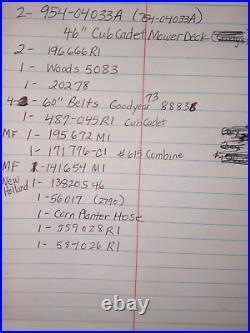 2- 954-04033A (754-04033A)
46" Cub Cadet Mower Deck
2- 196666R1
1- Woods 5083
1- 20278
4- 60" Belts Goodyear 73 8883
1- 487-045R1 Cub Cadet
MF 1- 195672 M1
1- 171776-C1 #615 Combine
MF 1- 141654 M1
New Holland 1- 138205 46
1-56017 (2790)
1- Corn Planter Hose
1- 559028 R1
1- 587026 R1